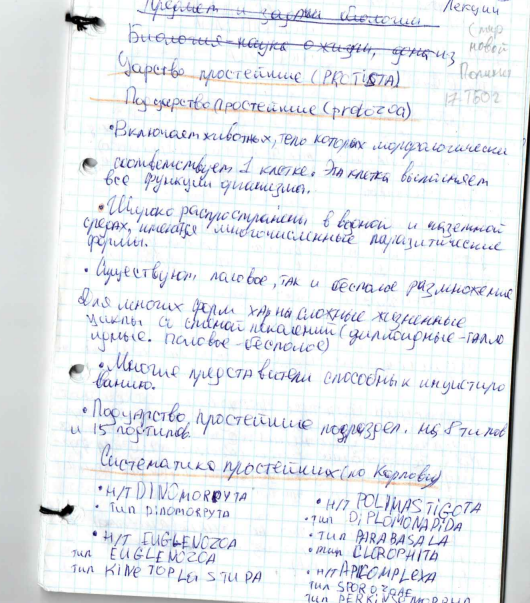 Предмет и задачи биологии
Лекции
Биология-наука о жизни, одна из
новой
Полина
17ТБО2
Царство простейшие (PROTISTA)
Подцарство Простейшие (protozoa)
• Включает животных, тело которых морфологически
соответствует 1 клетке. Эта клетка выполняет
все функции организма.
• Широко распространены в водной и наземной
средах, имеются многочисленные паразитические
формы.
• Существуют половое, так и бесполое размножение
Для многих форм хар-ны сложные жизненные
циклы со сменой поколений (диплоидные-гапло
идные. половое-бесполое)
• Многие представители способны к инцистиро
ванию.
• Подцарство простейшие подраздел. на 8 типов
и 15 подтипов.
Систематика простейших (по Карпову)
• Н/Т DINOMORPYTA
• тип DINOMORPYTA
• Н/Т EUGLENOZOA
тип EUGLENOZOA
тип KINETOPLASTIDA
• Н/Т POLIMASTIGOTA
• тип DIPLOMONADIDA
• тип PARABASALA
• тип CLOROPHITA
• Н/Т APICOMPLEXA
тип SPOROZOAE
тип PERKINSOMORPHA